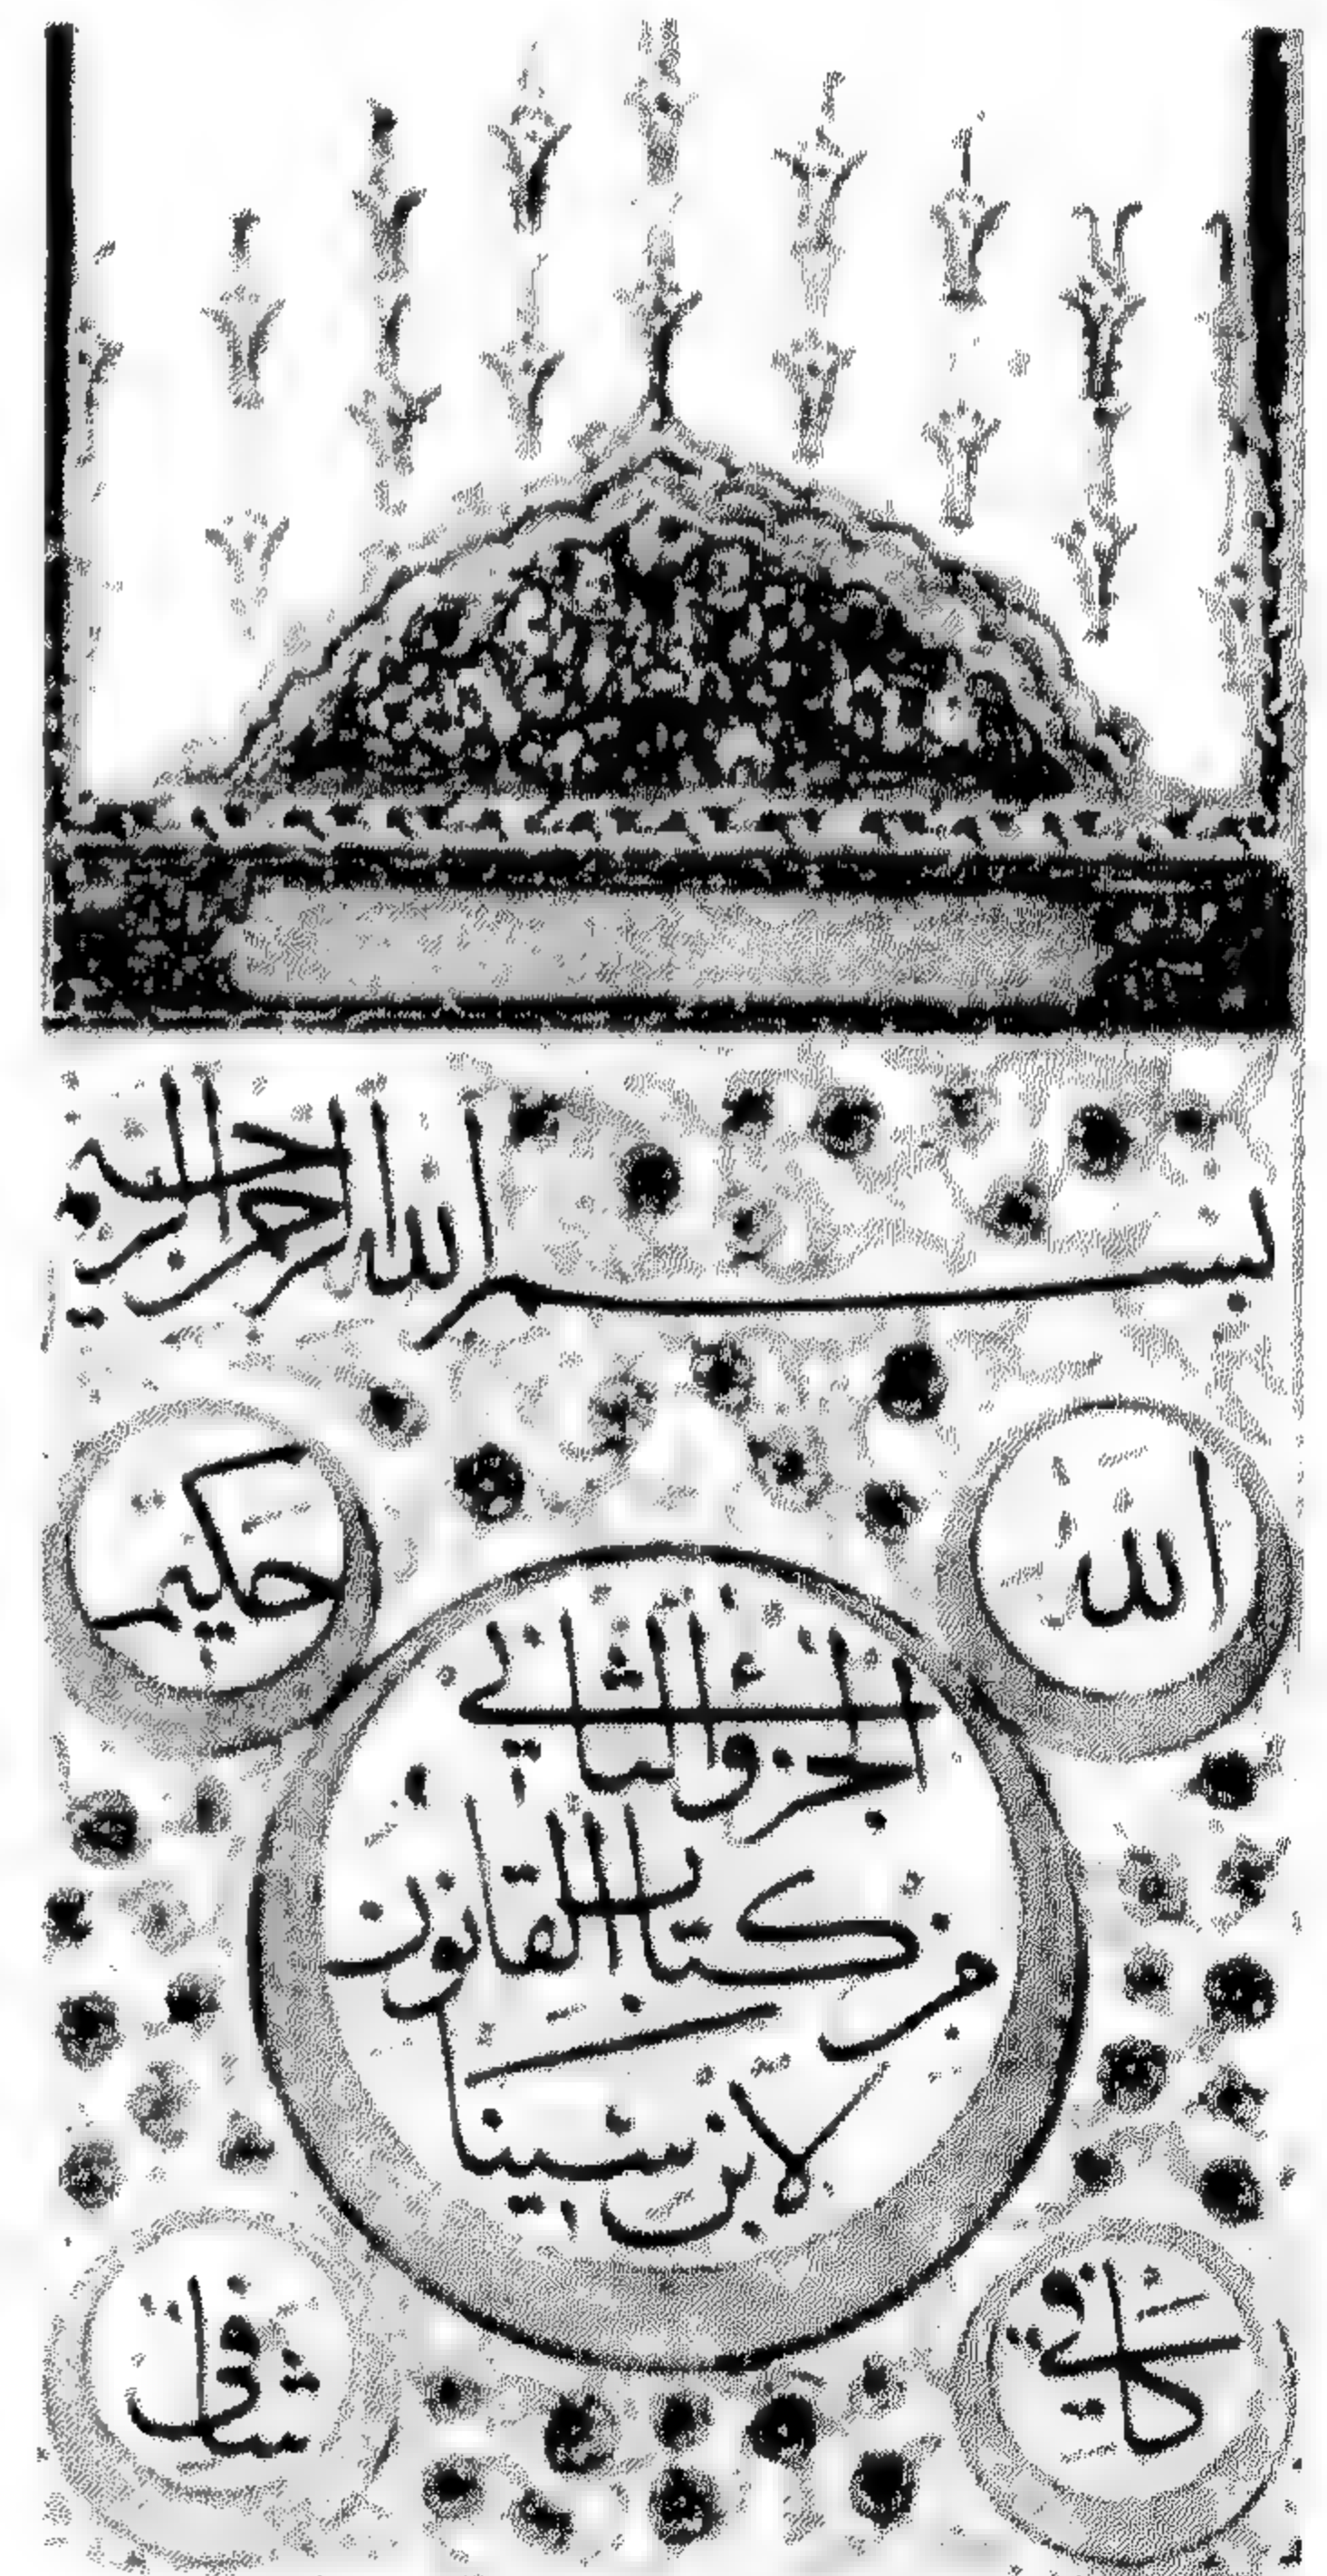 بسم الله الرحمن الرحيم
الله
حكيم
الجزو الثاني
من كتاب القانون
لابن سينا
كافي
شافي